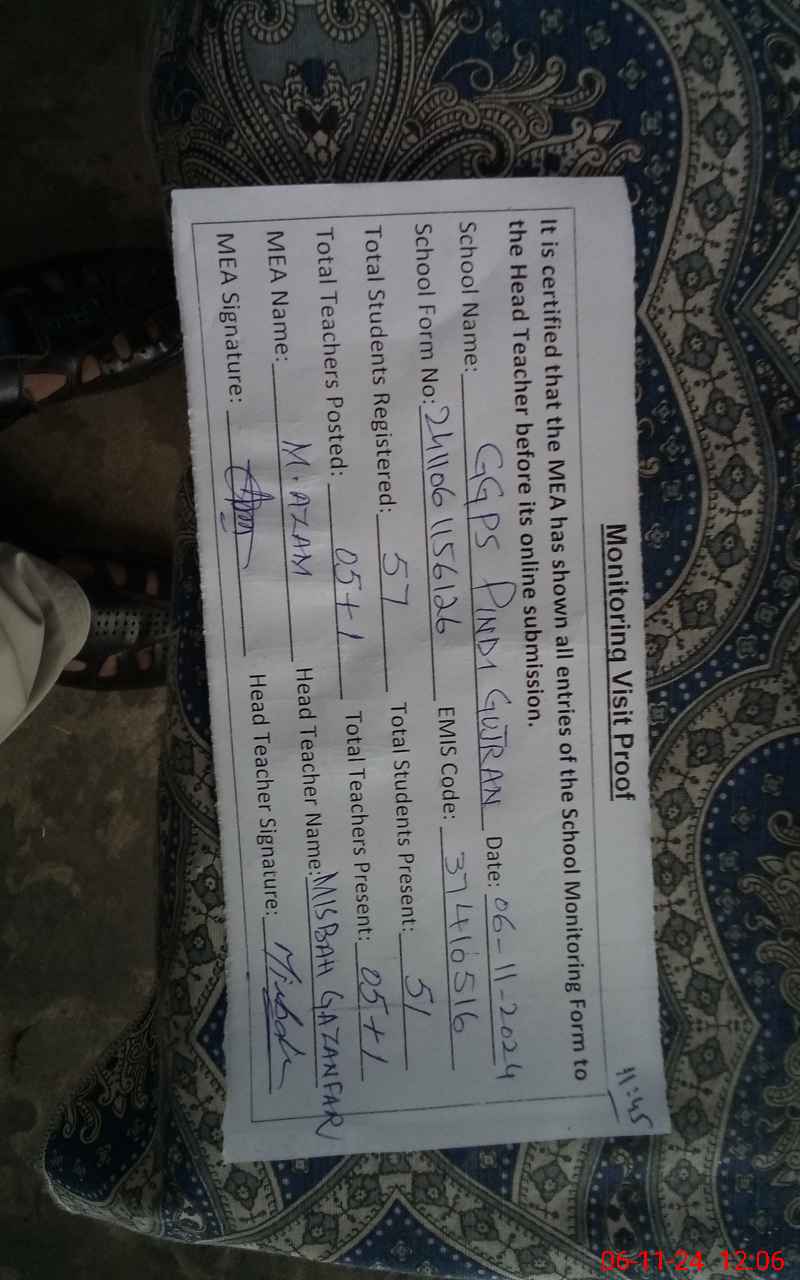 11:45
Monitoring Visit Proof
It is certified that the MEA has shown all entries of the School Monitoring Form to
the Head Teacher before its online submission.
School Name: GGPS PINDI GUJRAN Date: 06-11-2024
School Form No: 2411061156126 EMIS Code: 37416516
Total Students Registered: 57 Total Students Present: 51
Total Teachers Posted: 05+1 Total Teachers Present: 05+1
MEA Name: M. AZAM Head Teacher Name: MISBAH GAZANFAR
MEA Signature: Head Teacher Signature: Misbah
06-11-24 12:06